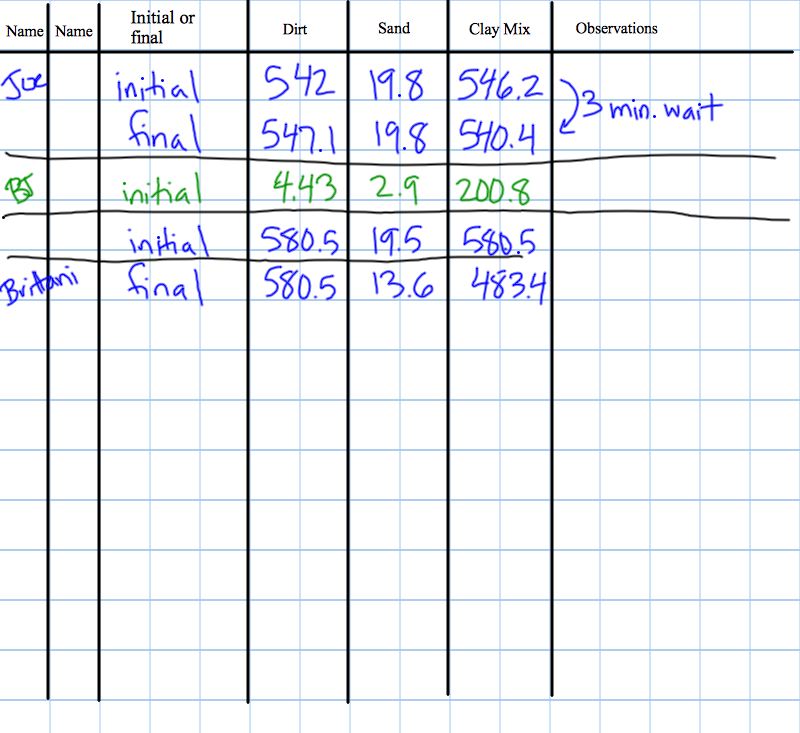 Name Name Initial or final Dirt Sand Clay Mix Observations
Joe initial 542 19.8 546.2 3 min. wait
final 547.1 19.8 540.4
BJ initial 4.43 2.9 200.8
initial 580.5 19.5 580.5
Brittani final 580.5 13.6 483.4